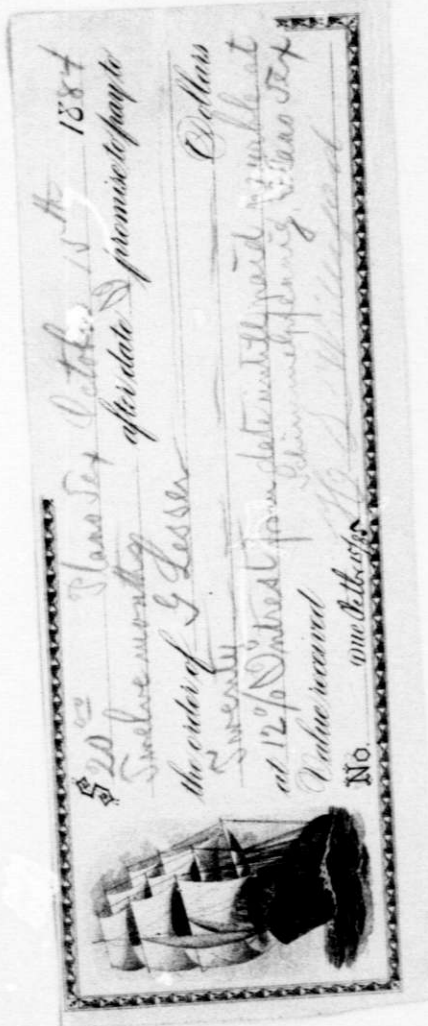 $20 00 Plano Tex October 15th 1884
Twelve months after date I promise to pay to
the order of G Lesser
Twenty Dollars
at 12% Intrest from date untill paid payable at
Value received Plano Tex
No. Due Octbr 15/85